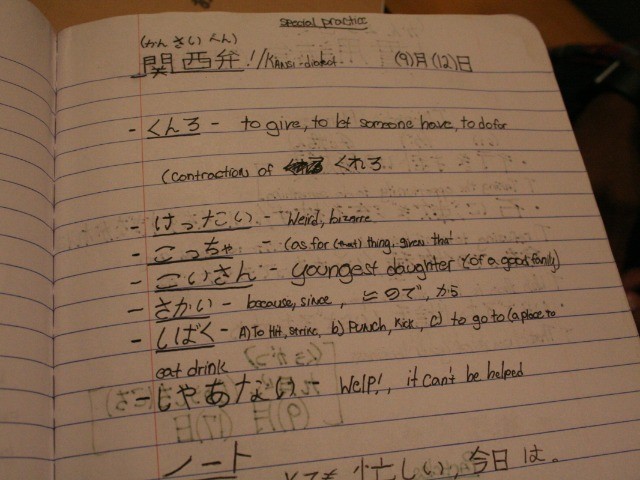 special practice
(かん さい べん)
関西弁 // Kansi-dialect (9)月(12)日
- くんろ - to give, to let someone have, to do for
(contraction of くれろ
- けったこい - Weird, bizarre
- こっちゃ - (as for (that) thing, given that
- こいさん - youngest daughter (of a good family)
- さかい - because, since, ので, から
- しばく - A) To Hit, strike, b) Punch, Kick, c) to go to (a place to
eat drink
- じゃあない - Welp!, it can't be helped
ノート
とても 忙しい, 今日 は。